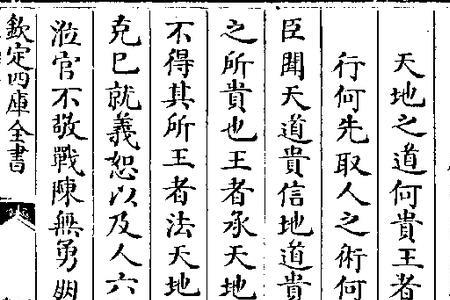 天地之道何貴王者
行何先取人之術何
臣聞天道貴信地道貴
之所貴也王者承天地
不得其所王者法天地
克己就義恕以及人六
涖官不敬戰陳無勇朋
欽定四庫全書